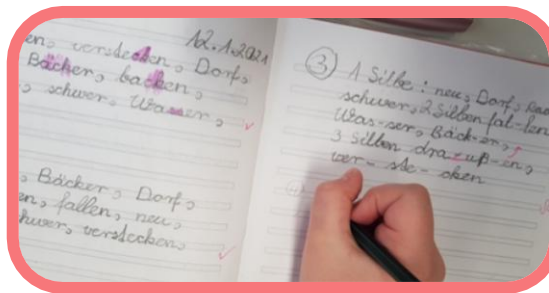 12.1.2021
en, verstecken, Dorf,
Bächer, backen,
, schwer, Wasser,
, Bäcker, Dorf,
en, fallen, neu,
hwer, verstecken,
③ 1 Silbe: neu, Dorf,
schwer, 2 Silben fal-len
Was-ser, Bäck-er,
3 Silben dra-uß-en,
ver-ste-cken